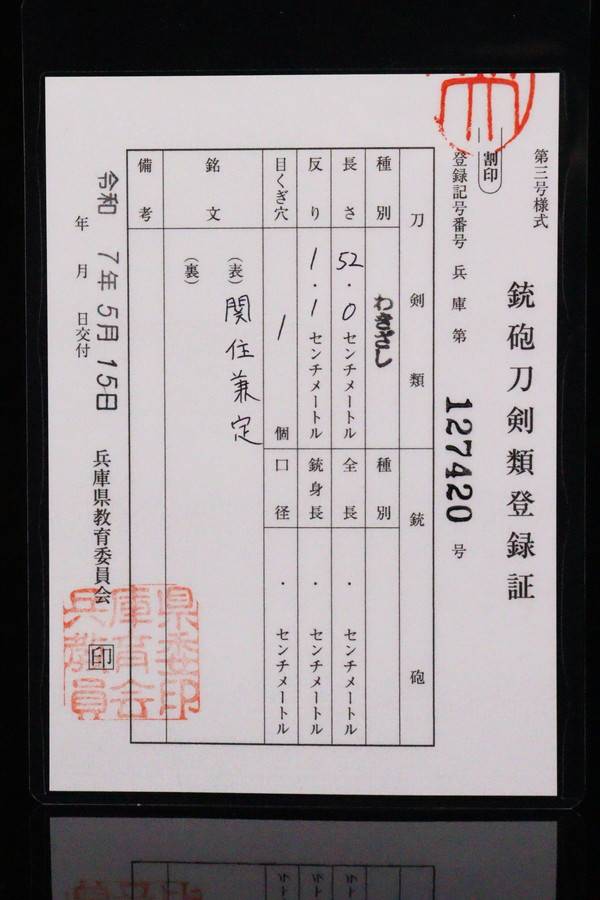 第三号様式
銃砲刀剣類登録証
割印
登録記号番号 兵庫 第 127420 号
刀剣類
銃砲
種別 わきざし
種別
長さ 52.0 センチメートル
全長 . センチメートル
反り 1.1 センチメートル
銃身長 . センチメートル
目くぎ穴 1 個
口径 . センチメートル
銘文 (表) 関住兼定
(裏)
備考
令和 7年 5月 15日
年 月 日交付
兵庫県教育委員会 印
県委印
庫育会
兵教員